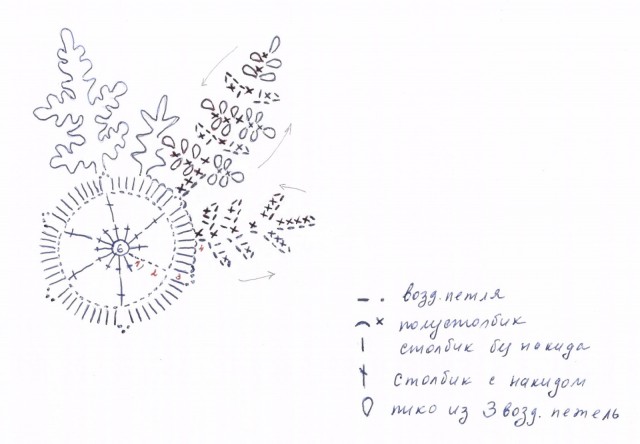 6
1
2
3
4
возд. петля
полустолбик
столбик без накида
столбик с накидом
пико из 3 возд. петель